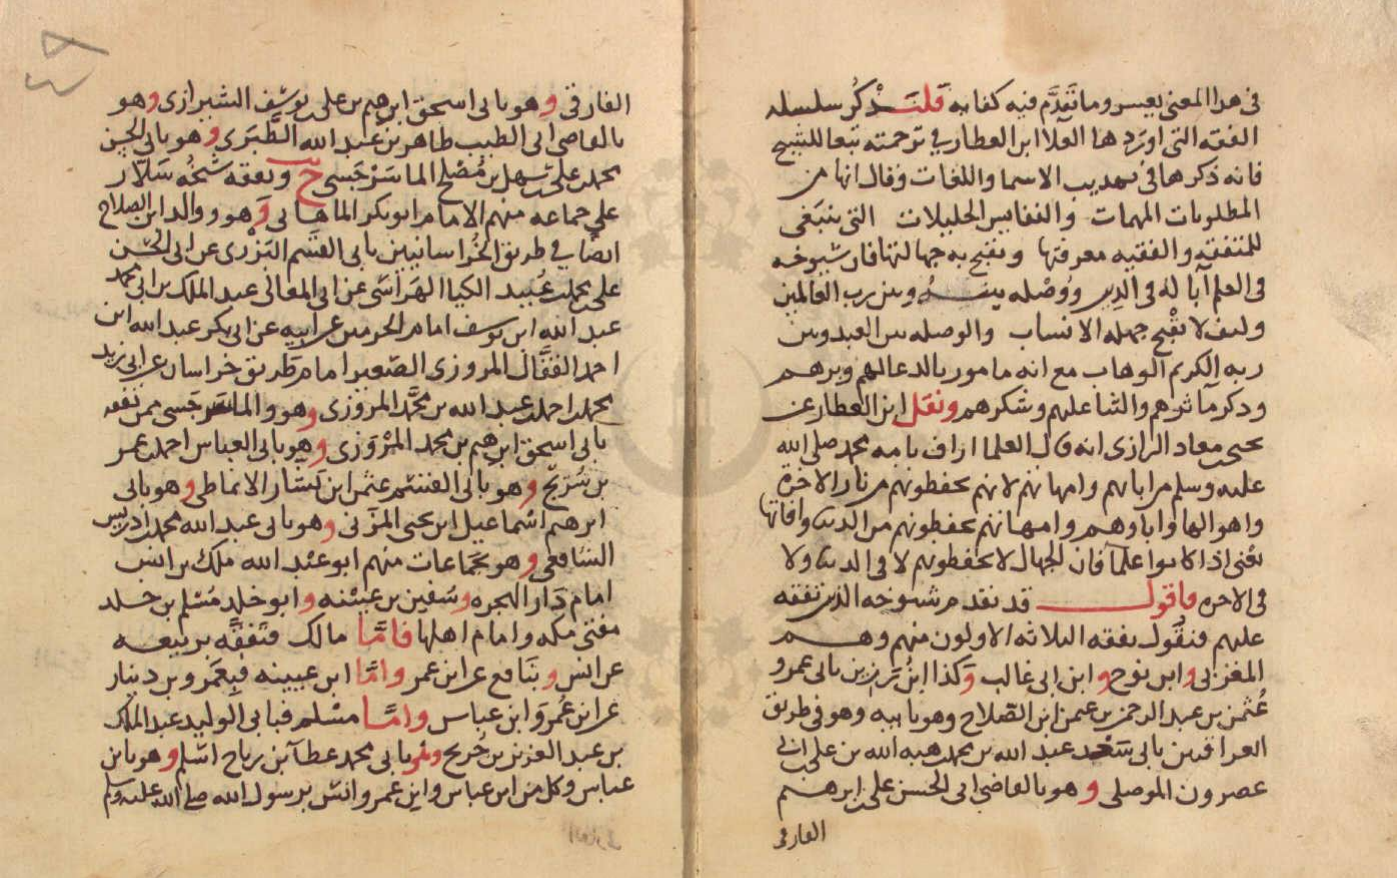 في هذا المعنى يعسر وما تقدم فيه كفايه فلنذكر سلسله
الفقه التي اوردها العلا ابن العطار في ترجمته تبعا للشيخ
فانه ذكرها في تهذيب الاسما واللغات وقال انها من
المطلوبات المهمات والنفايس الجليلات التي ينبغي
للمتفقه والفقيه معرفتها وتقبح به جهالتها فان شيوخه
في العلم آبا له في الدين ووصله بينه وبين رب العالمين
وكيف لا يقبح جهله الانساب والوصله بين العبد وبين
ربه الكريم الوهاب مع انه مامور بالدعا لهم وبرهم
وذكر مآثرهم والثنا عليهم وشكرهم ونقل ابن العطار عن
يحيى بن معاذ الرازي انه قال العلما اراف بامه محمد صلى الله
عليه وسلم من ابايهم وامهاتهم لانهم يحفظونهم من نار الاخرة
واهوالها واباوهم وامهاتهم يحفظونهم من الدنيا وافاتها
يعني اذا كانوا علما فان الجهال لا يحفظونهم لا في الدنيا ولا
في الاخره فاقول قد تقدم شيوخه الذين تفقه
عليهم فنقول تفقه الثلاثه الاولون منهم وهم
المغربي وابن نوح وابن ابي غالب وكذا ابن رزين بابي عمرو
عثمن بن عبد الرحمن بن عثمن ابن الصلاح وهو بابيه وهو في طريق
العراقيين بابي سعد عبد الله بن محمد هبه الله بن علي ابن ابي
عصرون الموصلي وهو بالقاضي ابي الحسن علي بن ابرهيم
الفارقي
الفارقي وهو بابي اسحق ابرهيم بن علي بن يوسف الشيرازي وهو
بالقاضي ابي الطيب طاهر بن عبد الله الطبري وهو بابي الحسن
محمد بن علي بن سهل بن مصلح الماسرجسي ح وتفقه شيخه سلار
على جماعه منهم الامام ابو بكر الماهاني وهو ووالد ابن الصلاح
ايضا في طريق الخراسانيين بابي القسم البزري عن ابي الحسن
علي بن محمد بن عبيد الكيا الهراسي عن ابي المعالي عبد الملك بن ابي محمد
عبد الله ابن يوسف امام الحرمين عن ابيه عن ابي بكر عبد الله ابن
احمد القفال المروزي الصغير امام طريق خراسان عن ابي زيد
محمد بن احمد بن عبد الله بن محمد المروزي وهو والماسرجسي ممن تفقه
بابي اسحق ابرهيم بن محمد المروزي وهو بابي العباس احمد بن عمر
بن سريج وهو بابي القسم عثمن ابن بشار الانماطي وهو بابي
ابرهيم اسماعيل ابن يحيى المزني وهو بابي عبد الله محمد بن ادريس
الشافعي وهو بجماعات منهم ابو عبد الله ملك بن انس
امام دار الهجره وسفين بن عيينه وابو خلد مسلم بن خلد
مفتي مكه وامام اهلها فاما مالك فتفقه بربيعه
عن انس وبنافع عن ابن عمر واما ابن عيينه فبعمرو بن دينار
عن ابن عمر وابن عباس واما مسلم فبابي الوليد عبد الملك
بن عبد العزيز بن جريج وهو بابي محمد عطا بن رباح اسلم وهو بابن
عباس وكل من ابن عباس وابن عمر وانس برسول الله صلى الله عليه وسلم